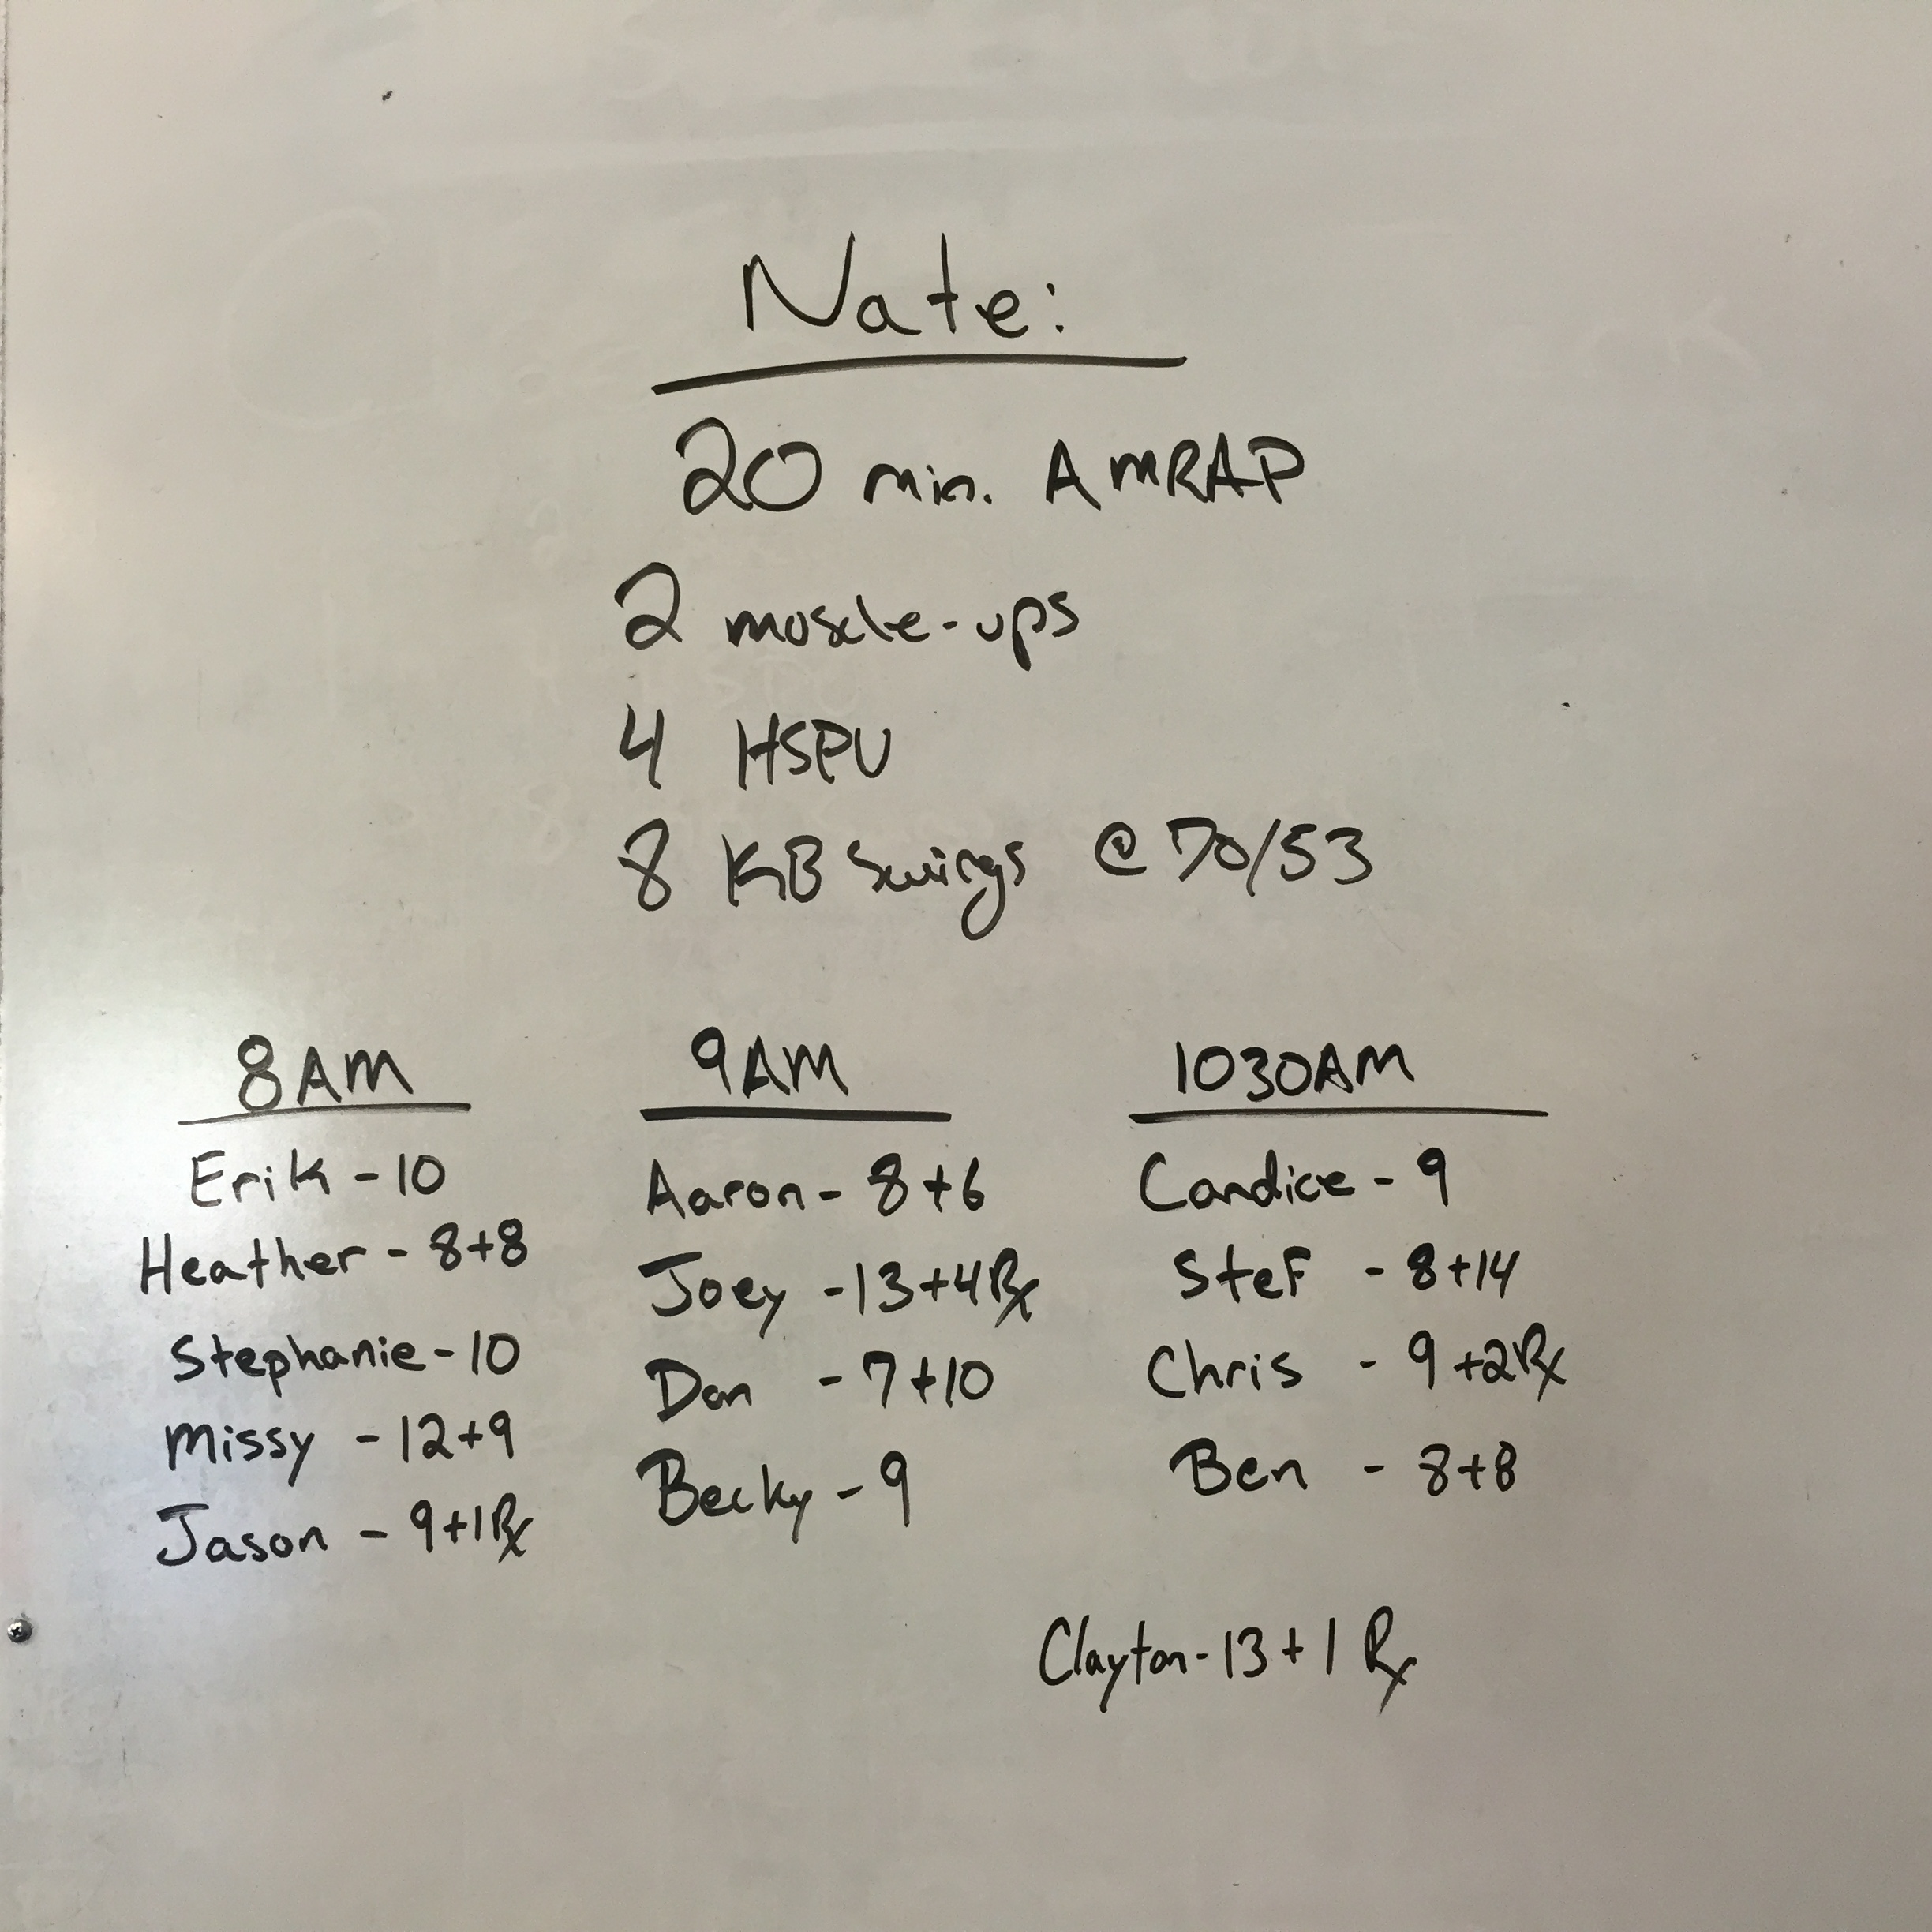 Nate:
20 min. AMRAP
2 muscle-ups
4 HSPU
8 KB Swings @ 70/53
8AM
Erik - 10
Heather - 8+8
Stephanie - 10
Missy - 12+9
Jason - 9+1 Rx
9AM
Aaron - 8+6
Joey - 13+4 Rx
Dan - 7+10
Becky - 9
1030AM
Candice - 9
Stef - 8+14
Chris - 9+2 Rx
Ben - 8+8
Clayton - 13+1 Rx